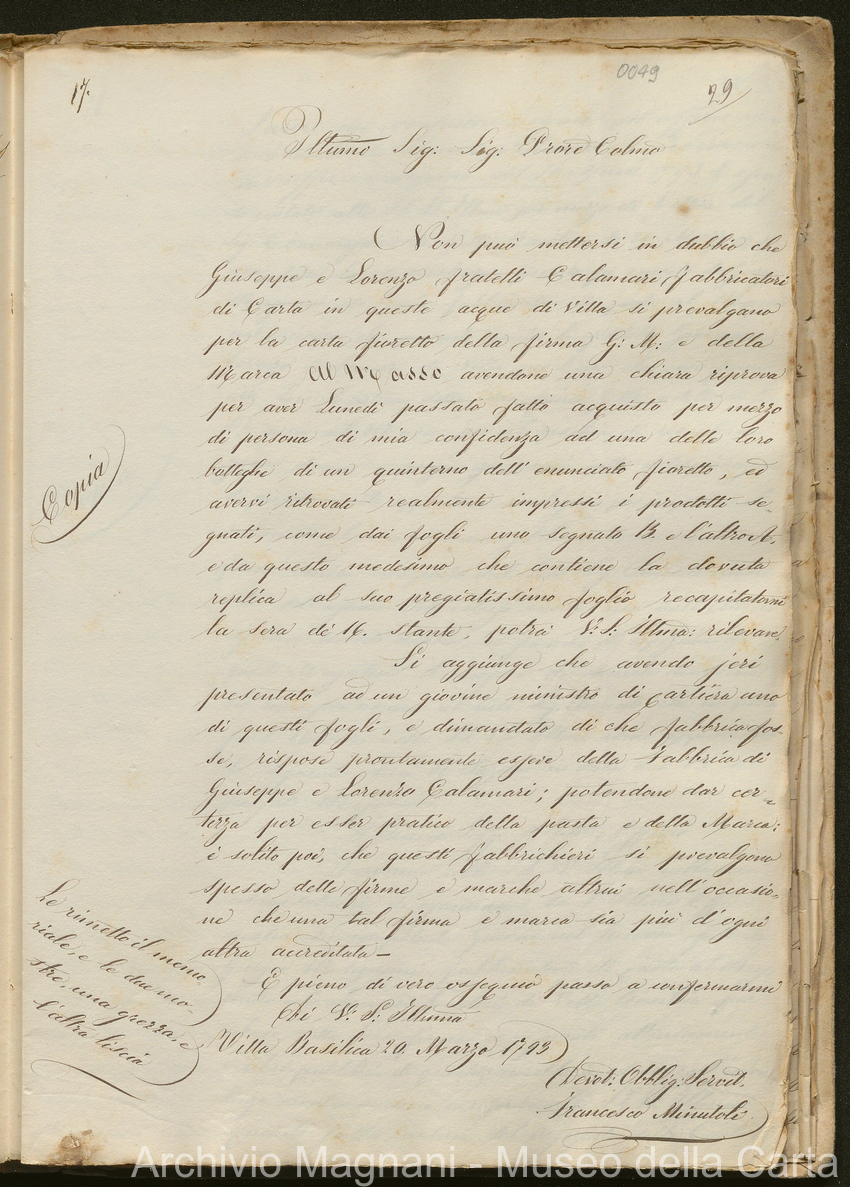 17.
0049
29
Illumo Sig: Sig. Prore Colmo
Non può mettersi in dubbio che
Giuseppe e Lorenzo fratelli Calamari fabbricatori
di Carta in queste acque di Villa si prevalgano
per la carta fioretto della firma G: M: e della
Marca Al Masso avendone una chiara riprova
per aver Lunedì passato fatto acquisto per mezzo
di persona di mia confidenza ad una delle loro
botteghe di un quinterno dell' enunciato fioretto, ed
avervi ritrovati realmente impressi i prodotti se-
gnati, come dai fogli uno segnato B. e l'altro A,
e da questo medesimo che contiene la dovuta
replica al suo pregiatissimo foglio recapitatomi
la sera de 16. stante, potrà V: S: Illma: rilevare.
Si aggiunge che avendo jeri
presentato ad un giovine ministro di cartiera uno
di questi fogli, e dimandato di che fabbrica fos-
se, rispose prontamente essere della Fabbrica di
Giuseppe e Lorenzo Calamari; potendone dar cer-
tezza per esser pratico della pasta e della Marca;
è solito poi, che questi fabbrichieri si prevalgono
spesso delle firme e marche altrui nell' occasio-
ne che una tal firma e marca sia più d'ogni
altra accreditata —
E pieno di vero ossequio passo a confermarmi
Di V: S: Illuma
Villa Basilica 20. Marzo 1793
Devot: Obblig: Servit.
Francesco Minutoli
Copia
Le rimetto il memo-
riale, e le due mo-
stre, una grezza, e
l'altra liscia
Archivio Magnani - Museo della Carta